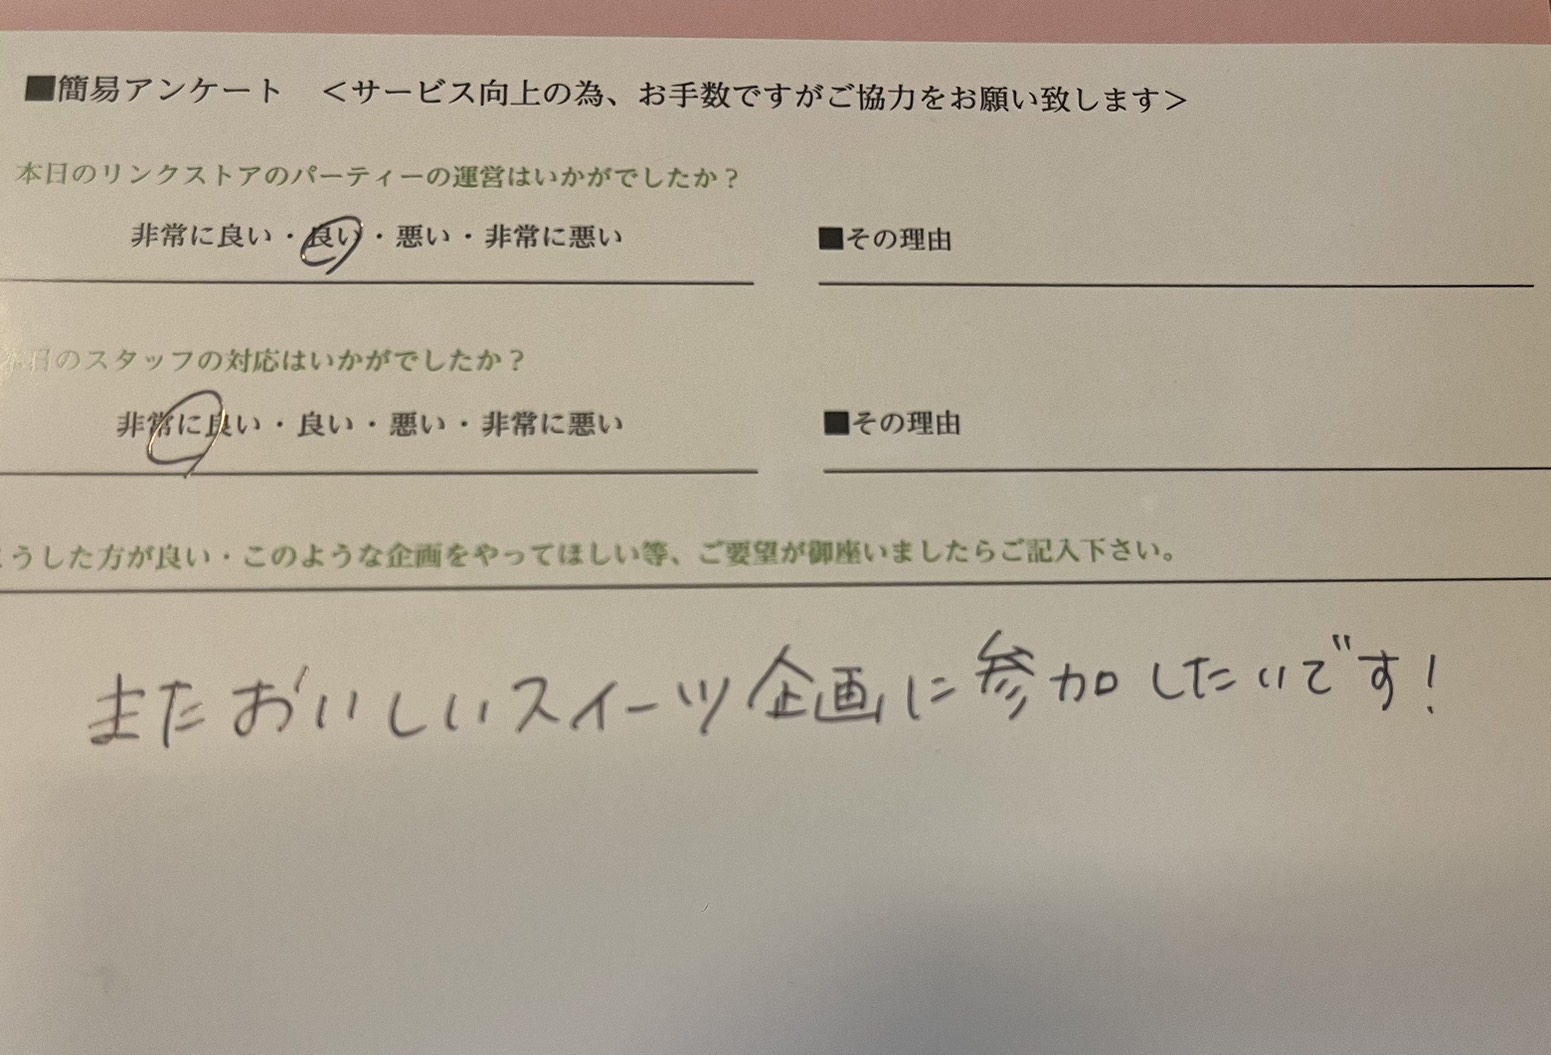 ■簡易アンケート　＜サービス向上の為、お手数ですがご協力をお願い致します＞
本日のリンクストアのパーティーの運営はいかがでしたか？
非常に良い・良い・悪い・非常に悪い　■その理由
本日のスタッフの対応はいかがでしたか？
非常に良い・良い・悪い・非常に悪い　■その理由
こうした方が良い・このような企画をやってほしい等、ご要望が御座いましたらご記入下さい。
またおいしいスイーツ企画に参加したいです！